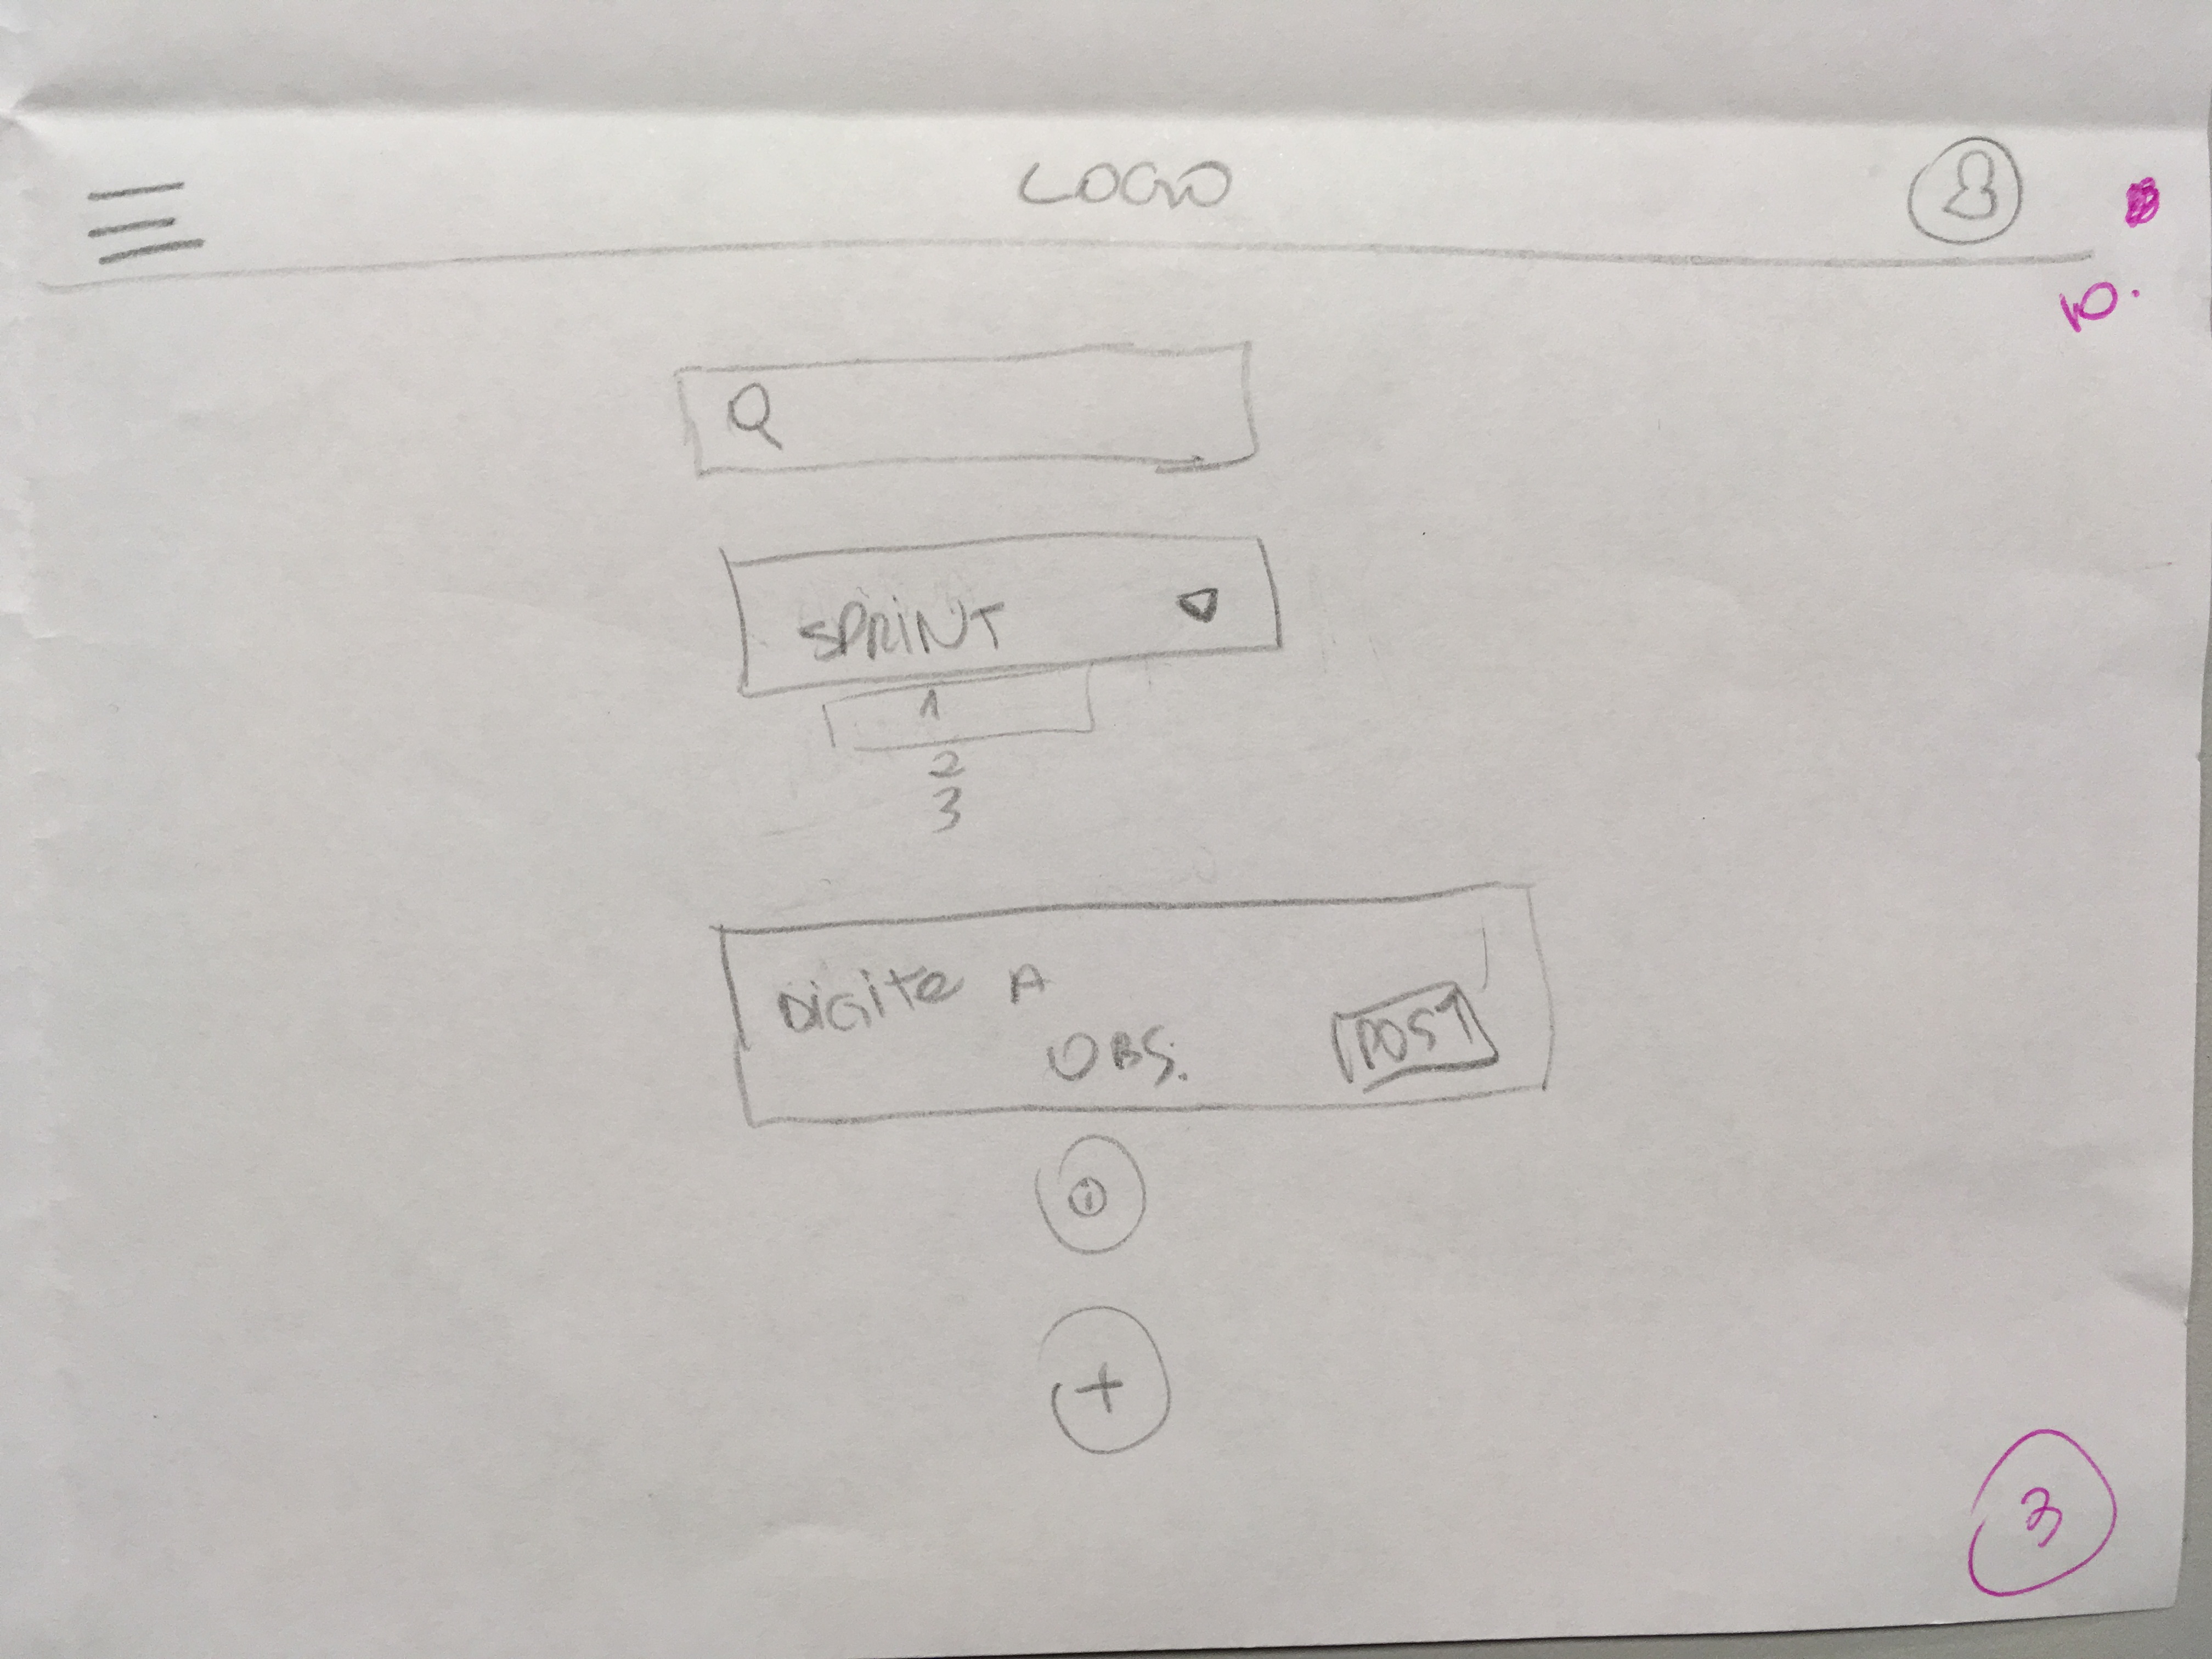 LOGO
10.
SPRINT
1
2
3
Digite A
OBS.
POST
3